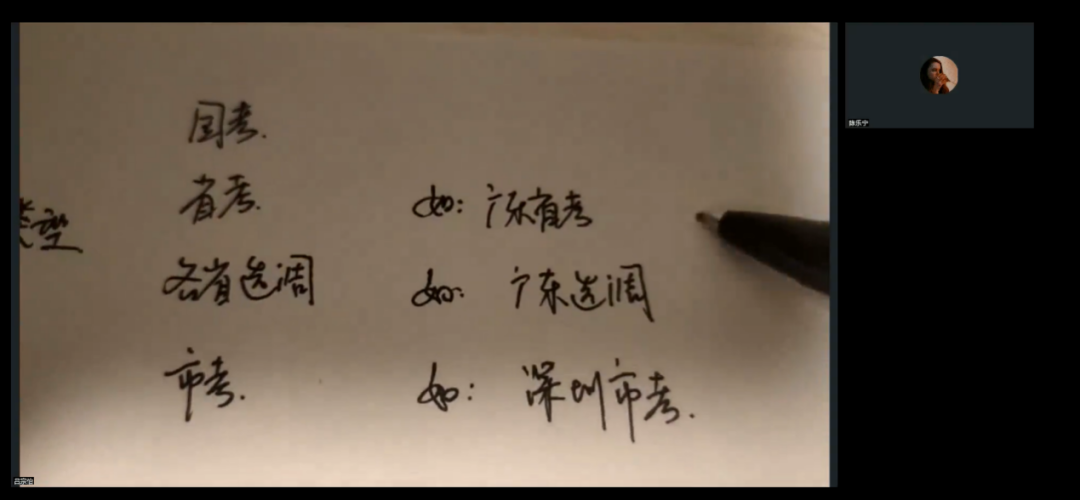 国考.
省考.
如: 广东省考
类型
各省选调
如: 广东选调
市考.
如: 深圳市考.